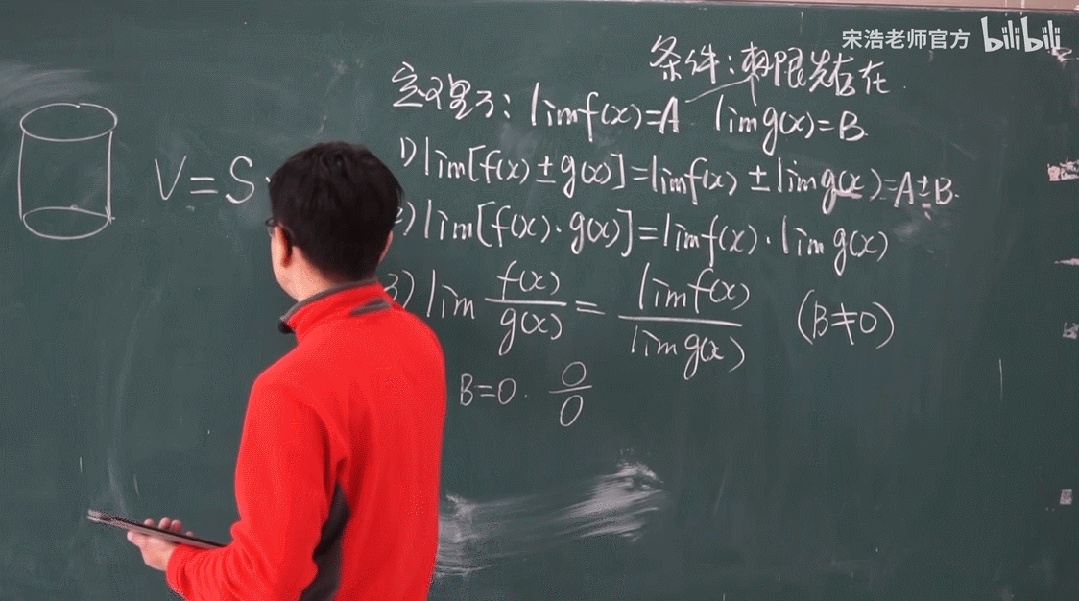 宋浩老师官方 bilibili
条件:极限先存在.
定理3: limf(x)=A limg(x)=B.
1) lim[f(x)±g(x)]=limf(x)±limg(x)=A±B.
2) lim[f(x)·g(x)]=limf(x)·limg(x)
3) lim f(x)/g(x) = limf(x)/limg(x) (B≠0)
B=0. 0/0
V=S·